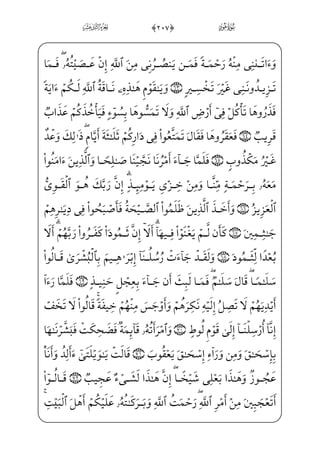 سُورَةُ هُودٍ ﴿٢٠٧﴾ الجُزْءُ الثَّانِي عَشَرَ
وَءَاتَىٰنِى مِنْهُ رَحْمَةً فَمَن يَنصُرُنِى مِنَ ٱللَّهِ إِنْ عَصَيْتُهُۥ ۖ فَمَا
تَزِيدُونَنِى غَيْرَ تَخْسِيرٍ ٦٣ وَيَٰقَوْمِ هَٰذِهِۦ نَاقَةُ ٱللَّهِ لَكُمْ ءَايَةً
فَذَرُوهَا تَأْكُلْ فِىٓ أَرْضِ ٱللَّهِ وَلَا تَمَسُّوهَا بِسُوٓءٍ فَيَأْخُذَكُمْ عَذَابٌ
قَرِيبٌ ٦٤ فَعَقَرُوهَا فَقَالَ تَمَتَّعُوا۟ فِى دَارِكُمْ ثَلَٰثَةَ أَيَّامٍ ۖ ذَٰلِكَ وَعْدٌ
غَيْرُ مَكْذُوبٍ ٦٥ فَلَمَّا جَآءَ أَمْرُنَا نَجَّيْنَا صَٰلِحًا وَٱلَّذِينَ ءَامَنُوا۟
مَعَهُۥ بِرَحْمَةٍ مِّنَّا وَمِنْ خِزْىِ يَوْمِئِذٍ ۗ إِنَّ رَبَّكَ هُوَ ٱلْقَوِىُّ
ٱلْعَزِيزُ ٦٦ وَأَخَذَ ٱلَّذِينَ ظَلَمُوا۟ ٱلصَّيْحَةُ فَأَصْبَحُوا۟ فِى دِيَٰرِهِمْ
جَٰثِمِينَ ٦٧ كَأَن لَّمْ يَغْنَوْا۟ فِيهَآ ۗ أَلَآ إِنَّ ثَمُودَا۟ كَفَرُوا۟ رَبَّهُمْ ۗ أَلَا
بُعْدًا لِّثَمُودَ ٦٨ وَلَقَدْ جَآءَتْ رُسُلُنَآ إِبْرَٰهِيمَ بِٱلْبُشْرَىٰ قَالُوا۟
سَلَٰمًا ۖ قَالَ سَلَٰمٌ ۖ فَمَا لَبِثَ أَن جَآءَ بِعِجْلٍ حَنِيذٍ ٦٩ فَلَمَّا رَءَآ
أَيْدِيَهُمْ لَا تَصِلُ إِلَيْهِ نَكِرَهُمْ وَأَوْجَسَ مِنْهُمْ خِيفَةً ۚ قَالُوا۟ لَا تَخَفْ
إِنَّآ أُرْسِلْنَآ إِلَىٰ قَوْمِ لُوطٍ ٧٠ وَٱمْرَأَتُهُۥ قَآئِمَةٌ فَضَحِكَتْ فَبَشَّرْنَٰهَا
بِإِسْحَٰقَ وَمِن وَرَآءِ إِسْحَٰقَ يَعْقُوبَ ٧١ قَالَتْ يَٰوَيْلَتَىٰٓ ءَأَلِدُ وَأَنَا۠
عَجُوزٌ وَهَٰذَا بَعْلِى شَيْخًا ۖ إِنَّ هَٰذَا لَشَىْءٌ عَجِيبٌ ٧٢ قَالُوٓا۟
أَتَعْجَبِينَ مِنْ أَمْرِ ٱللَّهِ ۖ رَحْمَتُ ٱللَّهِ وَبَرَكَٰتُهُۥ عَلَيْكُمْ أَهْلَ ٱلْبَيْتِ ۚ